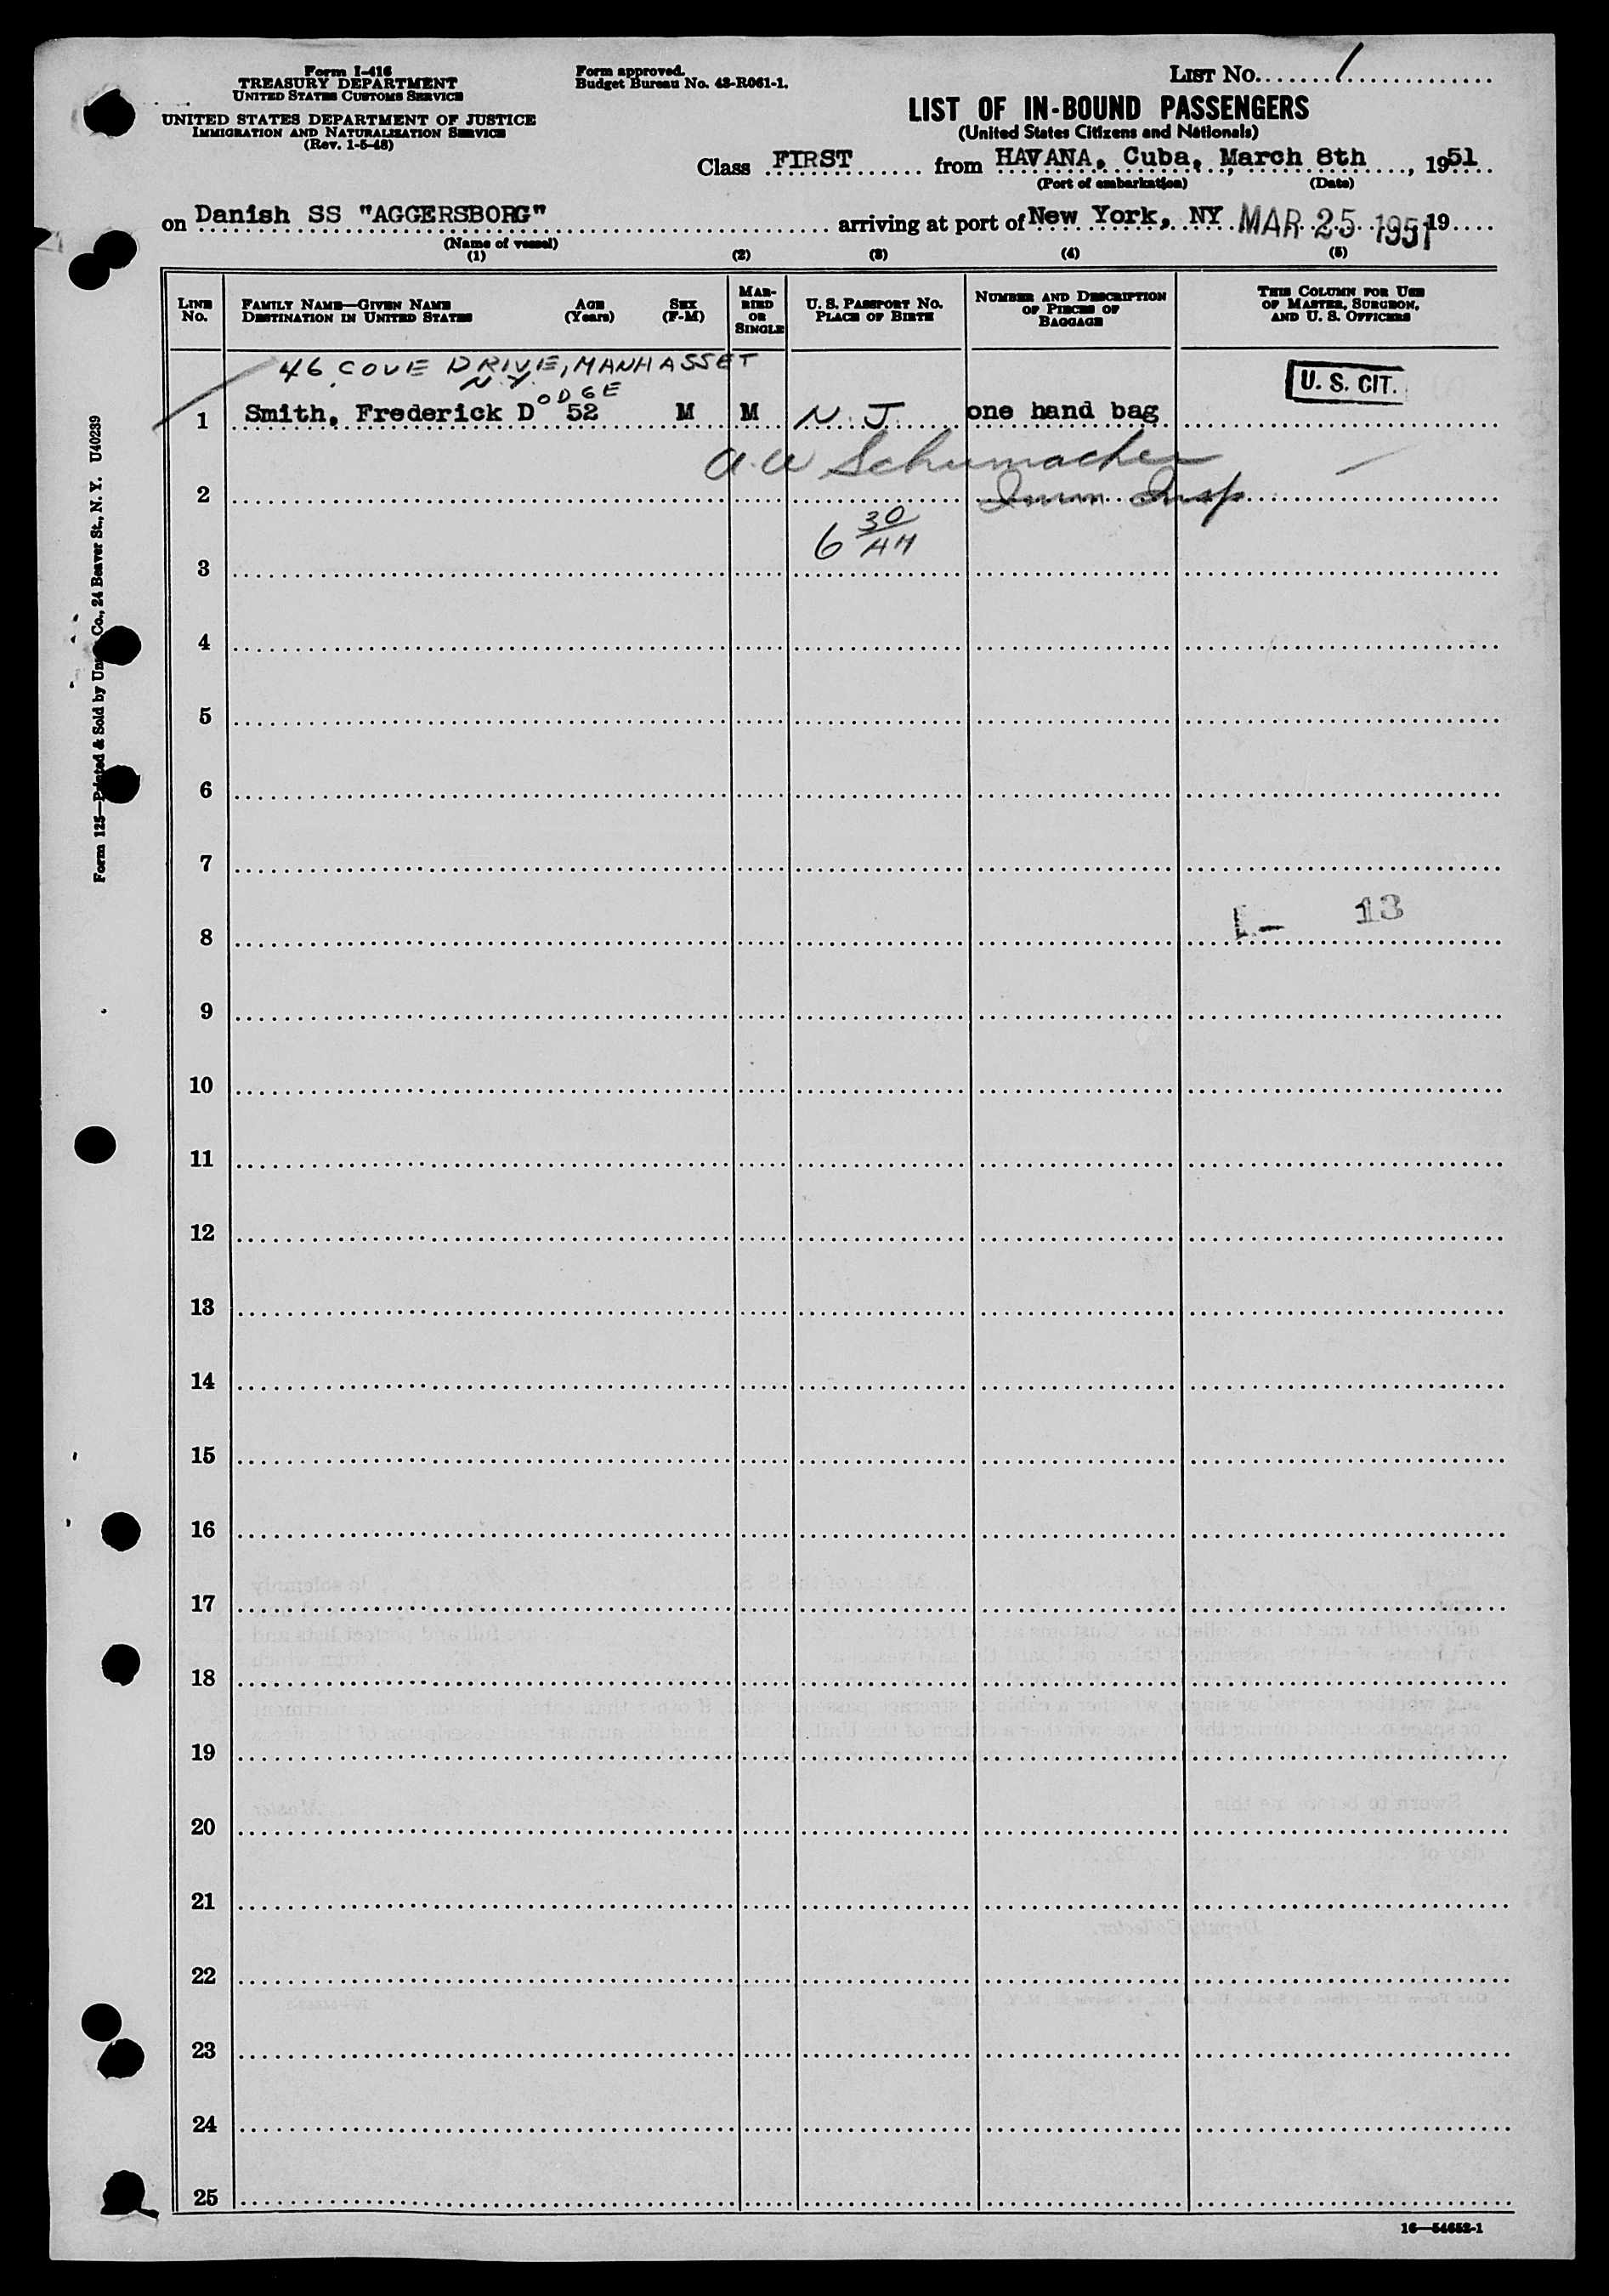 Form I-416
TREASURY DEPARTMENT
UNITED STATES CUSTOMS SERVICE
UNITED STATES DEPARTMENT OF JUSTICE
IMMIGRATION AND NATURALIZATION SERVICE
(Rev. 1-5-48)
Form approved.
Budget Bureau No. 43-R061-1.
LIST NO. 1
LIST OF IN-BOUND PASSENGERS
(United States Citizens and Nationals)
Class FIRST from HAVANA, Cuba, March 8th, 1951
(Port of embarkation) (Date)
on Danish SS "AGGERSBORG" arriving at port of New York, NY MAR 25 1951 19
(Name of vessel)
(1) (2) (3) (4) (5)
LINE NO.
FAMILY NAME—GIVEN NAME
DESTINATION IN UNITED STATES
AGE
(Years)
SEX
(F-M)
MAR-
RIED
OR
SINGLE
U. S. PASSPORT NO.
PLACE OF BIRTH
NUMBER AND DESCRIPTION
OF PIECES OF
BAGGAGE
THIS COLUMN FOR USE
OF MASTER, SURGEON,
AND U. S. OFFICERS
46 COVE DRIVE, MANHASSET
N.Y.
U. S. CIT.
ODGE
1 Smith, Frederick D 52 M M N. J. one hand bag
A. W Schumacher
2 Imm Insp
6 30/AM
3
4
5
6
7
13
8
9
10
11
12
13
14
15
16
17
18
19
20
21
22
23
24
25
16—54652-1
Form 125—Printed & Sold by Co., 24 Beaver St., N. Y. U40239